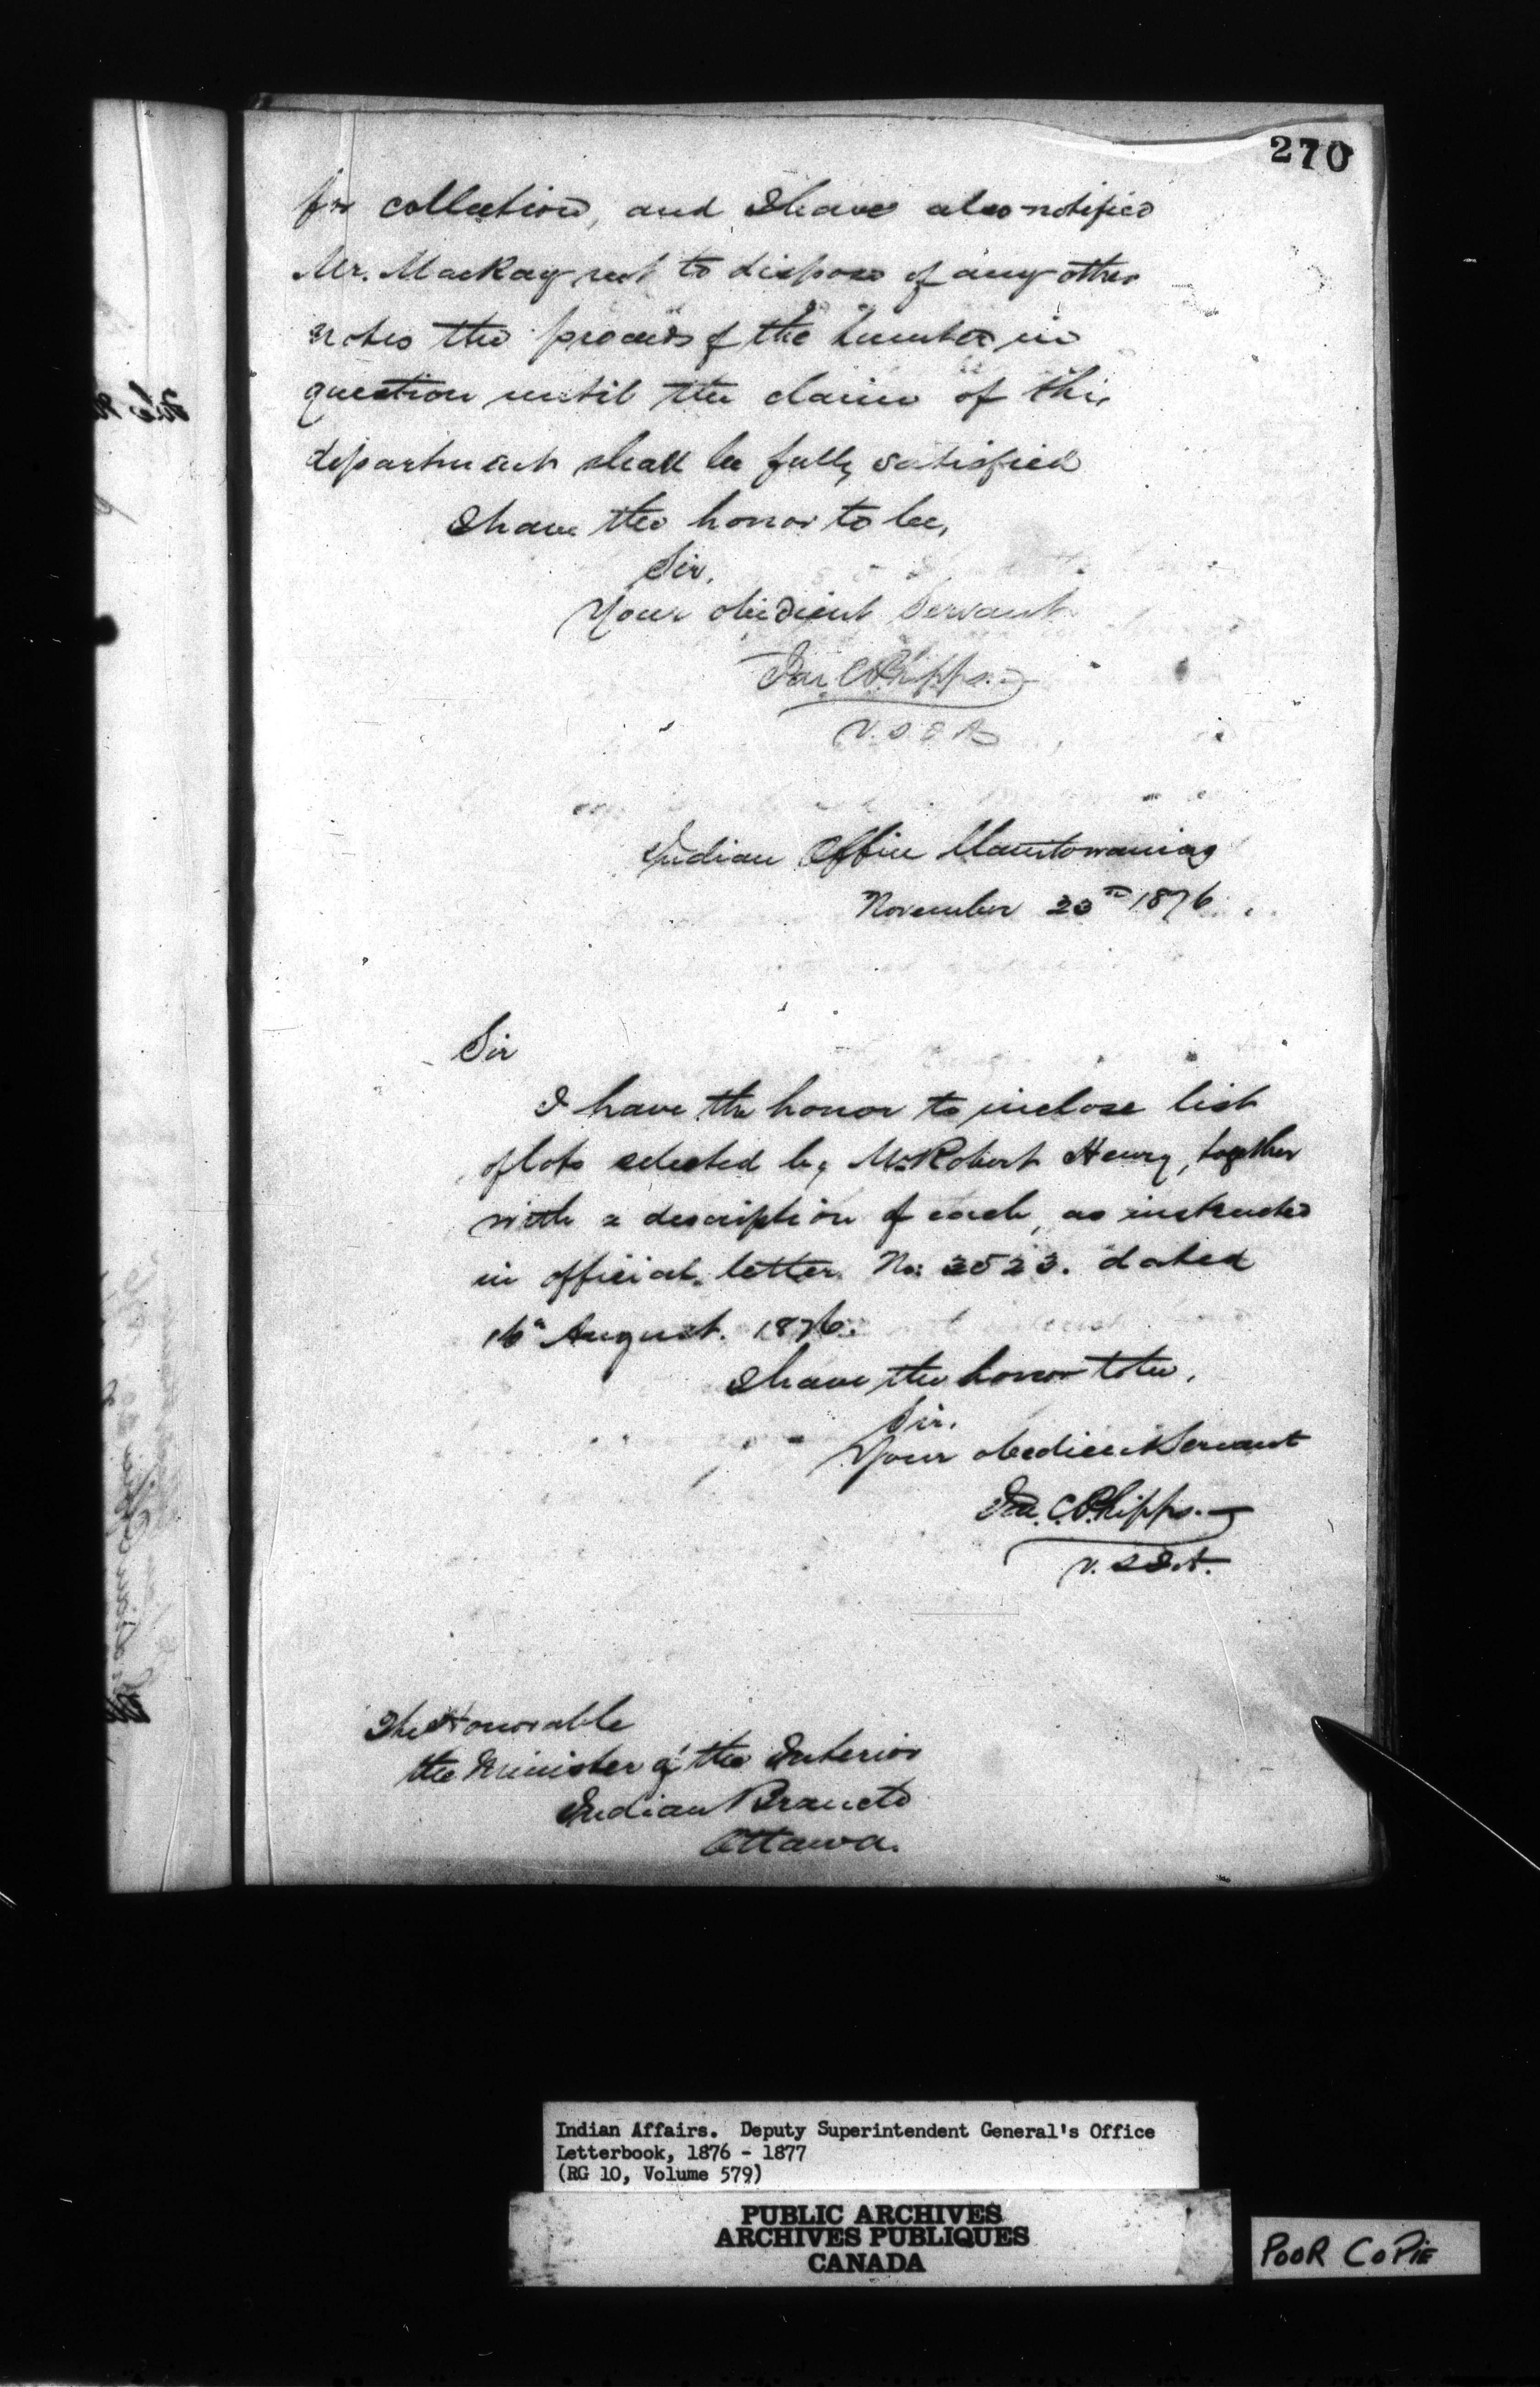 270
for collection, and I have also notified
Mr. MacKay not to dispose of any other
notes the proceeds of the lumber in
question until the claim of this
department shall be fully satisfied
I have the honor to be,
Sir,
Your obedient Servant
Jas. C. Phipps.
V. S. I. A.
Indian Office Manitowaning
November 23rd 1876
Sir
I have the honor to inclose list
of lots selected by Mr. Robert Henry, together
with a description of each, as instructed
in official letter No: 3523. dated
16th August. 1876.
I have the honor to be,
Sir.
Your obedient Servant
Jas. C. Phipps.
V. S. I. A.
The Honorable
the Minister of the Interior
Indian Branch
Ottawa.
Indian Affairs. Deputy Superintendent General's Office
Letterbook, 1876 - 1877
(RG 10, Volume 579)
PUBLIC ARCHIVES
ARCHIVES PUBLIQUES
CANADA
POOR COPIE